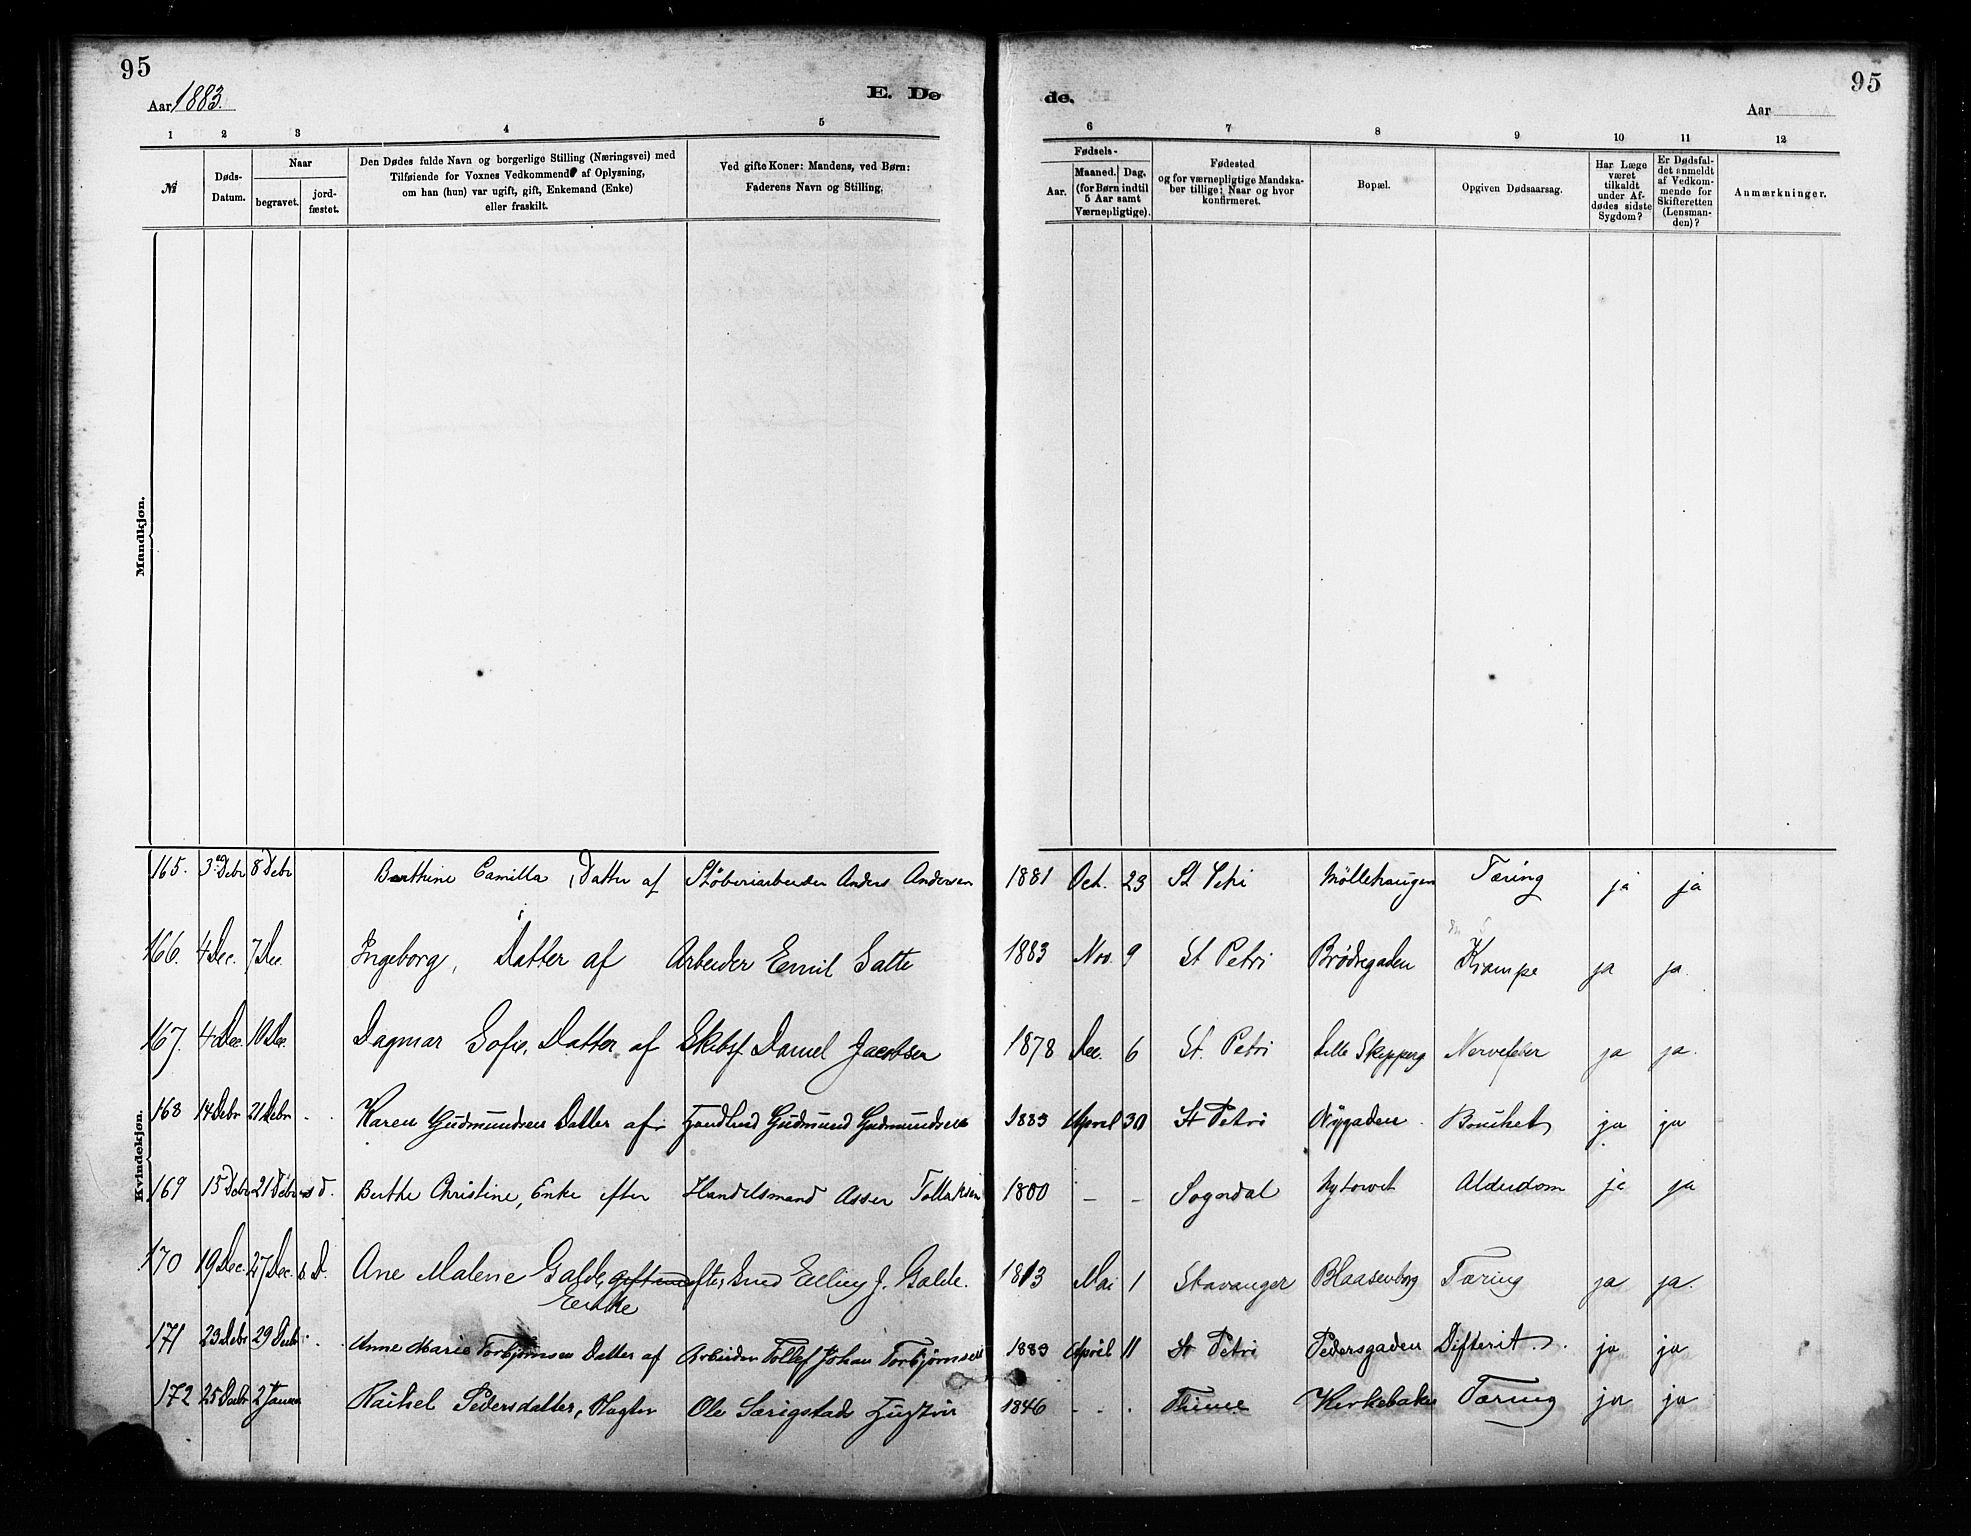 95
95
Aar 1883.
E. Døde.
Aar
1 2 3 4 5 6 7 8 9 10 11 12
№
Døds-
Datum.
Naar
begravet.
jord-
fæstet.
Den Dødes fulde Navn og borgerlige Stilling (Næringsvei) med
Tilføiende for Voxnes Vedkommende af Oplysning,
om han (hun) var ugift, gift, Enkemand (Enke)
eller fraskilt.
Ved gifte Koner: Mandens, ved Børn:
Faderens Navn og Stilling.
Fødsels-
Aar.
Maaned. Dag,
(for Børn indtil
5 Aar samt
Værnepligtige).
Fødested
og for værnepligtige Mandska-
ber tillige: Naar og hvor
konfirmeret.
Bopæl.
Opgiven Dødsaarsag.
Har Læge
været
tilkaldt
under Af-
dødes sidste
Sygdom?
Er Dødsfal-
det anmeldt
af Vedkom-
mende for
Skifteretten
(Lensman-
den)?
Anmærkninger.
Mandkjøn.
Kvindekjøn.
165. 3 Debr 8 Debr Berthine Camilla, Datter af Støberiarbeider Anders Andersen 1881 Oct. 23 St Petri Möllehaugen Tæring ja ja
166. 4 Dec. 7 Dec. Ingeborg, Datter af Arbeider Emil Salte 1883 Nov. 9 St Petri Brødregaden Krampe ja ja.
167. 4 Dec. 10 Dec. Dagmar Sofie, Datter af Skibsf. Daniel Jacobsen 1878 Dec. 6 St. Petri Lille Skipperg Nervefeber ja ja.
168 14 Debr 21 Debr Karen Gudmundsen Datter af Gudmund Gudmundsen 1883 April 30 St Petri Nygaden Bronchet ja ja
169 15 Debr 21 Debr s. d. Berthe Christine, Enke efter Handelsmand Asser Tollaksen 1800 – – Sogndal Nytorvet Alderdom ja ja
170 19 Dec. 27 Dec. s. D. Ane Malene Galde, efter J. Galde. 1813 Mai 1 Stavanger Blaasenborg Tæring ja ja.
Enke
171 23 Debr 29 Debr Anne Marie Torbjørnsen Datter af Arbeider Tollef Johan Torbjørnsen 1883 April 11 St Petri Pedersgaden Difterit. ja ja
172 25 Debr 2 Januar Rachel Pedersdatter, Ole Særigstads Hustru 1846 Thime Kirkebakken Tæring ja ja